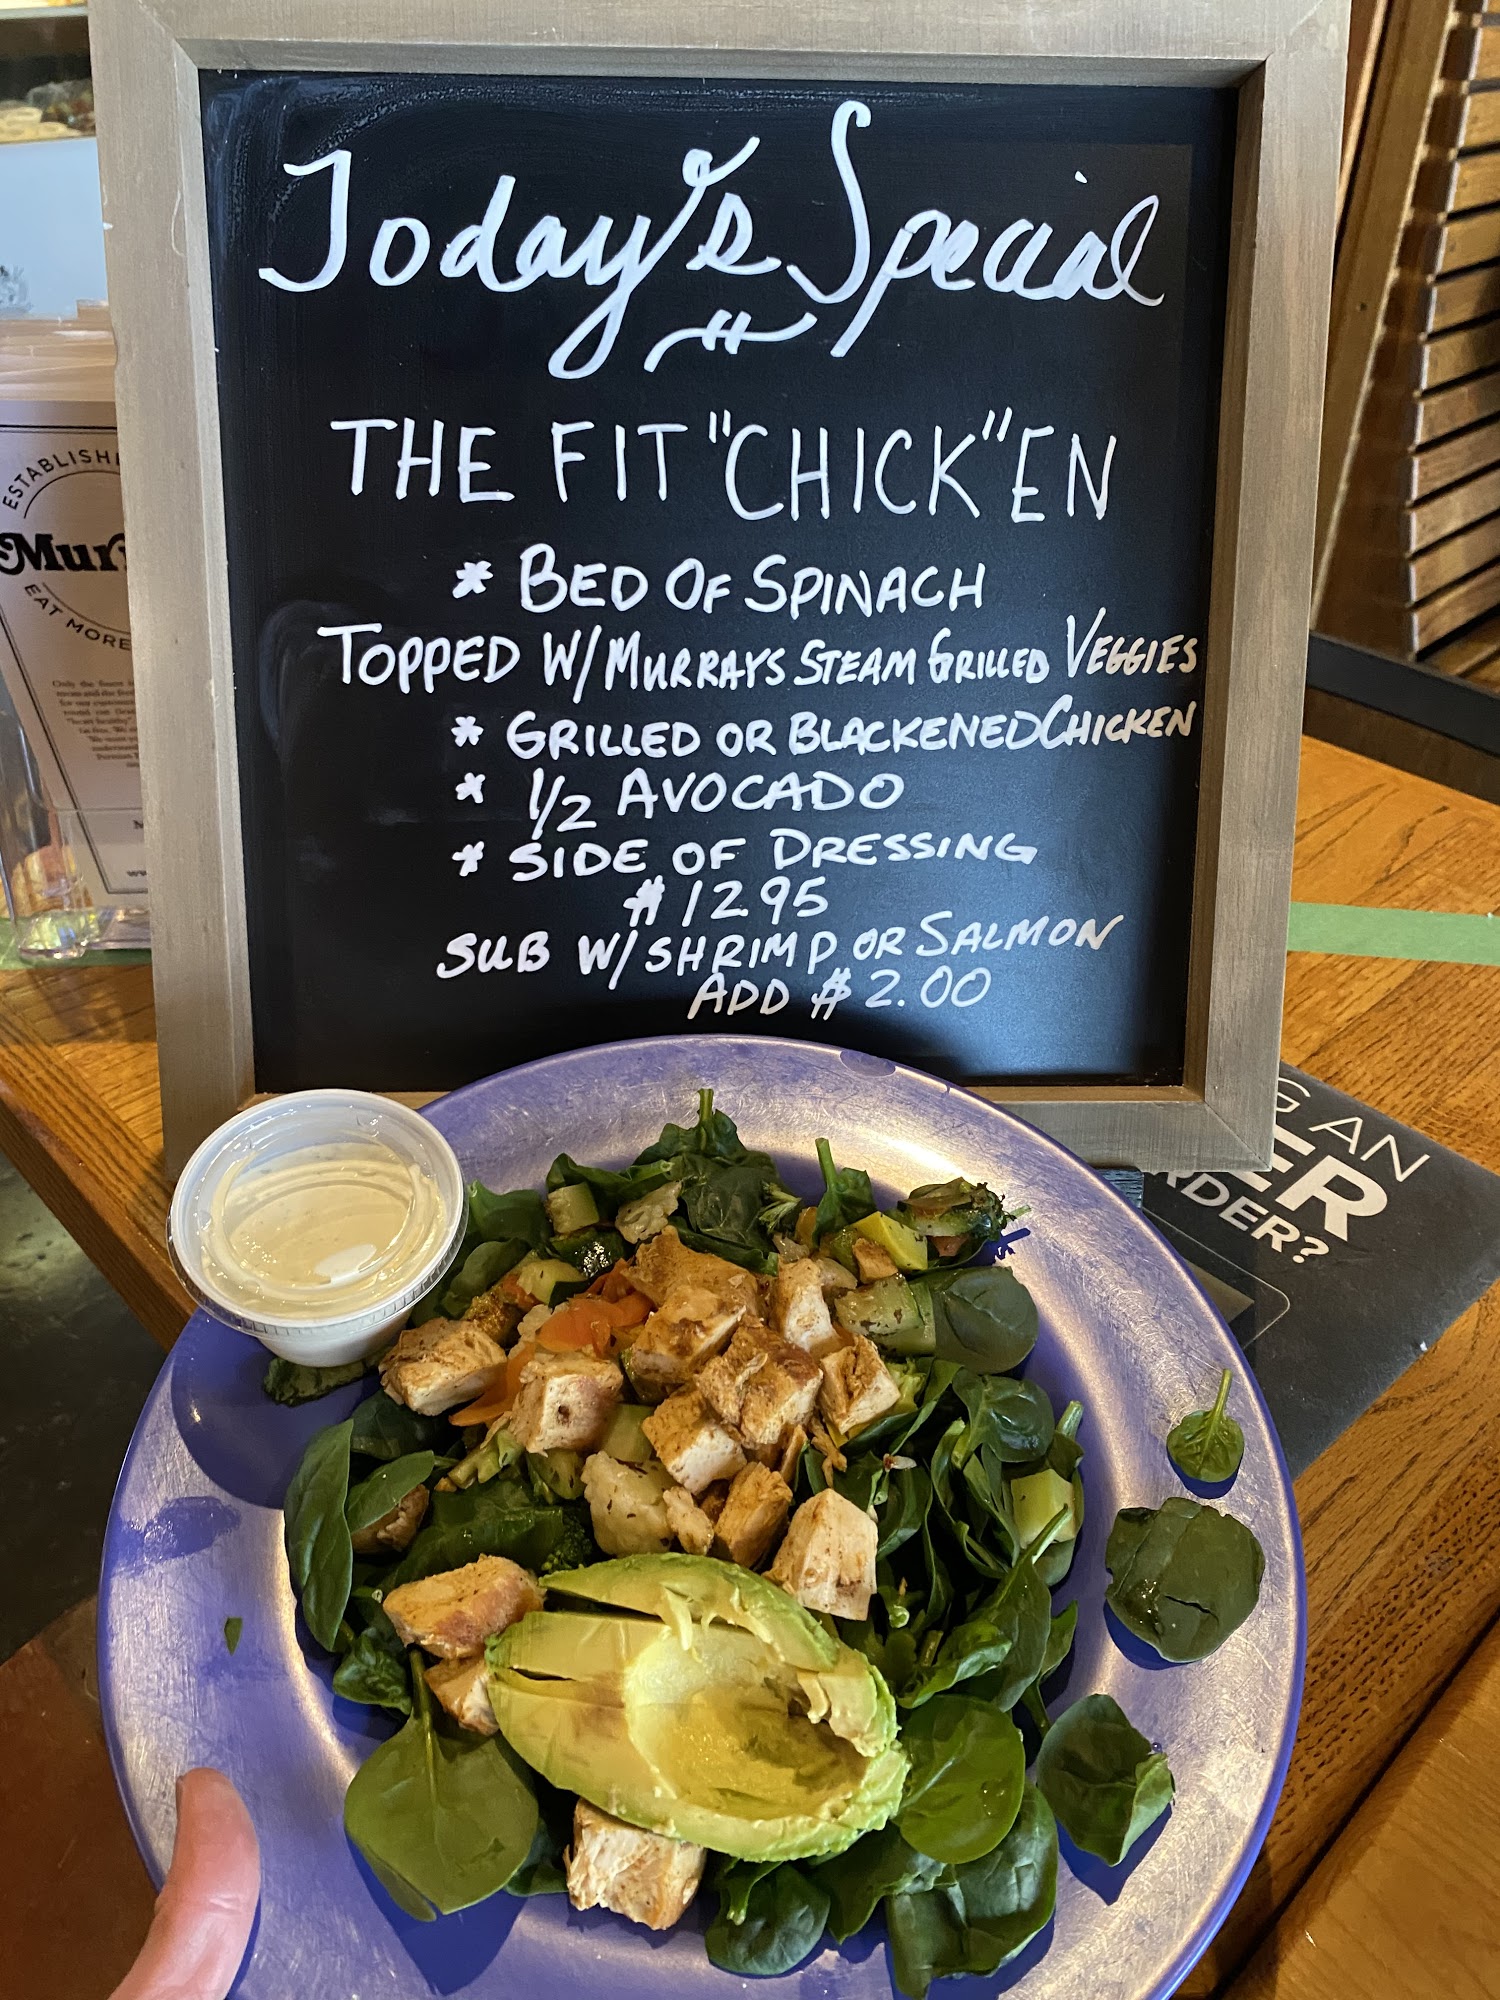 Today's Special
THE FIT "CHICK"EN
* BED OF SPINACH
TOPPED W/ MURRAYS STEAM GRILLED VEGGIES
* GRILLED OR BLACKENED CHICKEN
* 1/2 AVOCADO
* SIDE OF DRESSING
$12.95
SUB W/ SHRIMP OR SALMON
ADD $2.00
EAT MORE
AN
RDER?